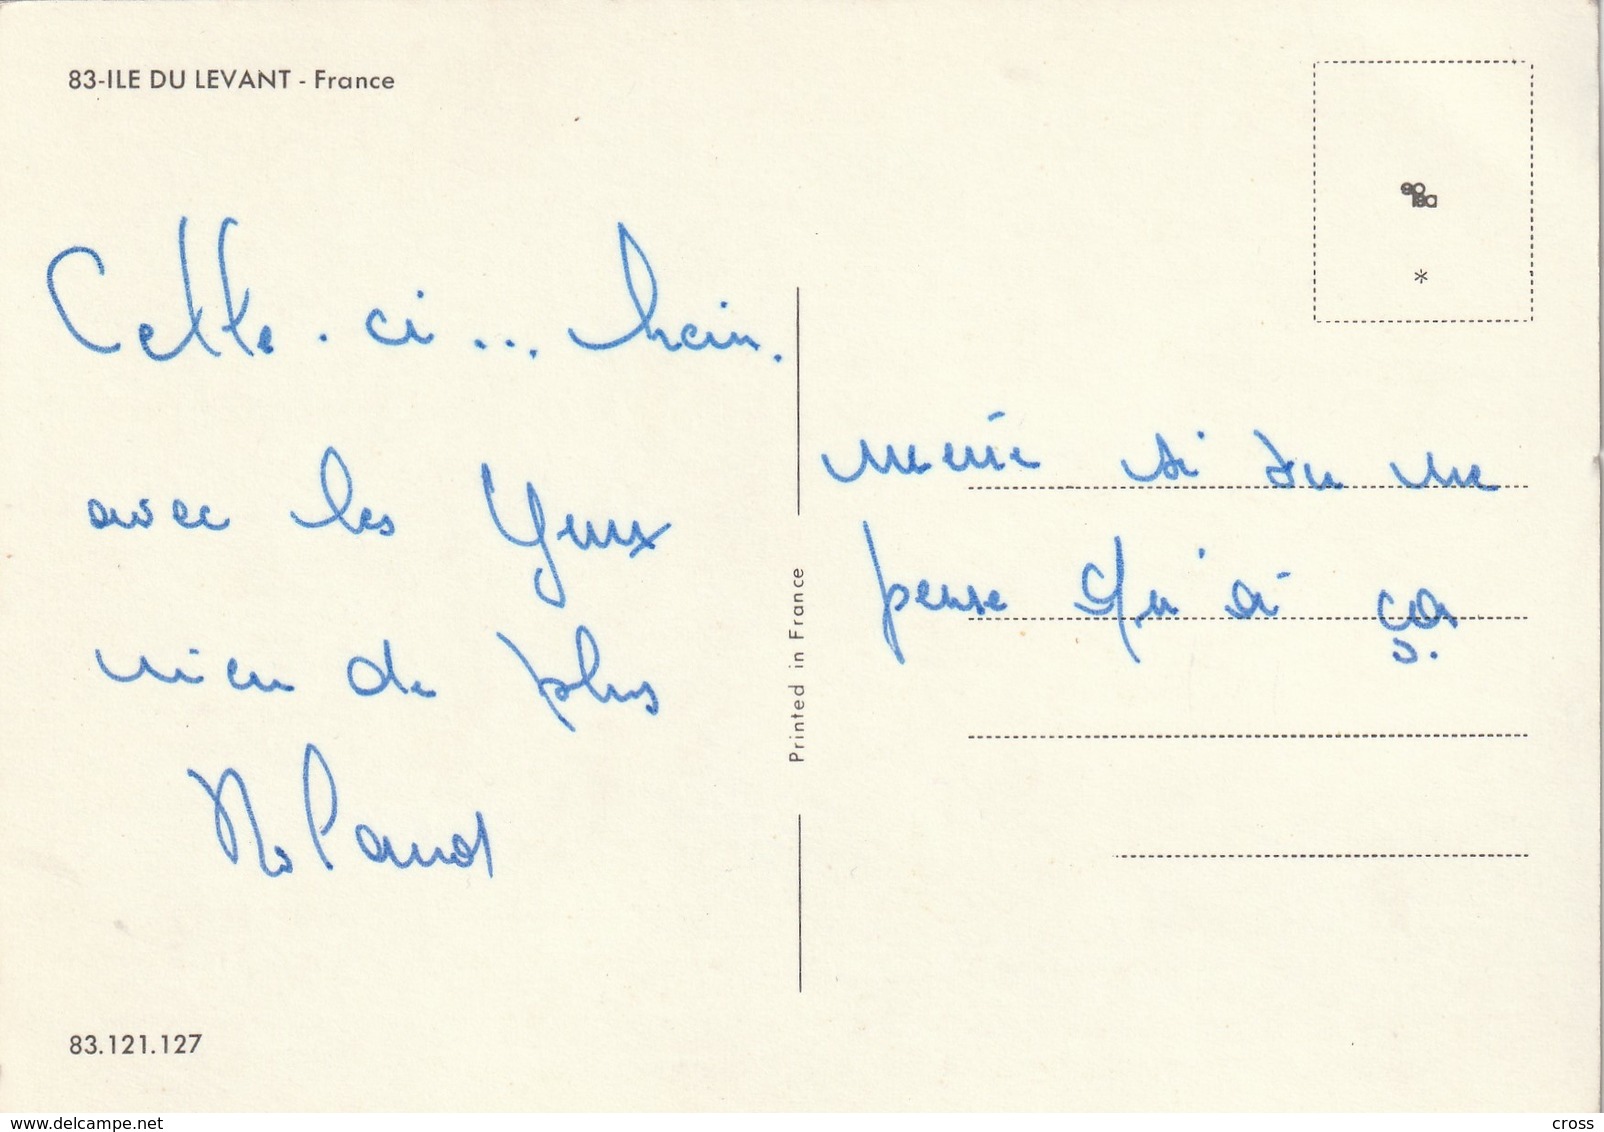 83-ILE DU LEVANT - France
Celle-ci... hein.
avec les yeux
rien de plus
Roland
même si tu ne
pense qu'à ça
Printed in France
*
83.121.127
delcampe.net
cross